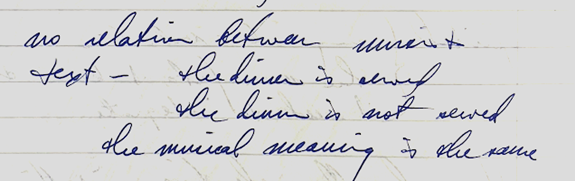 no relation between music &
text – the dinner is served
the dinner is not served
the musical meaning is the same